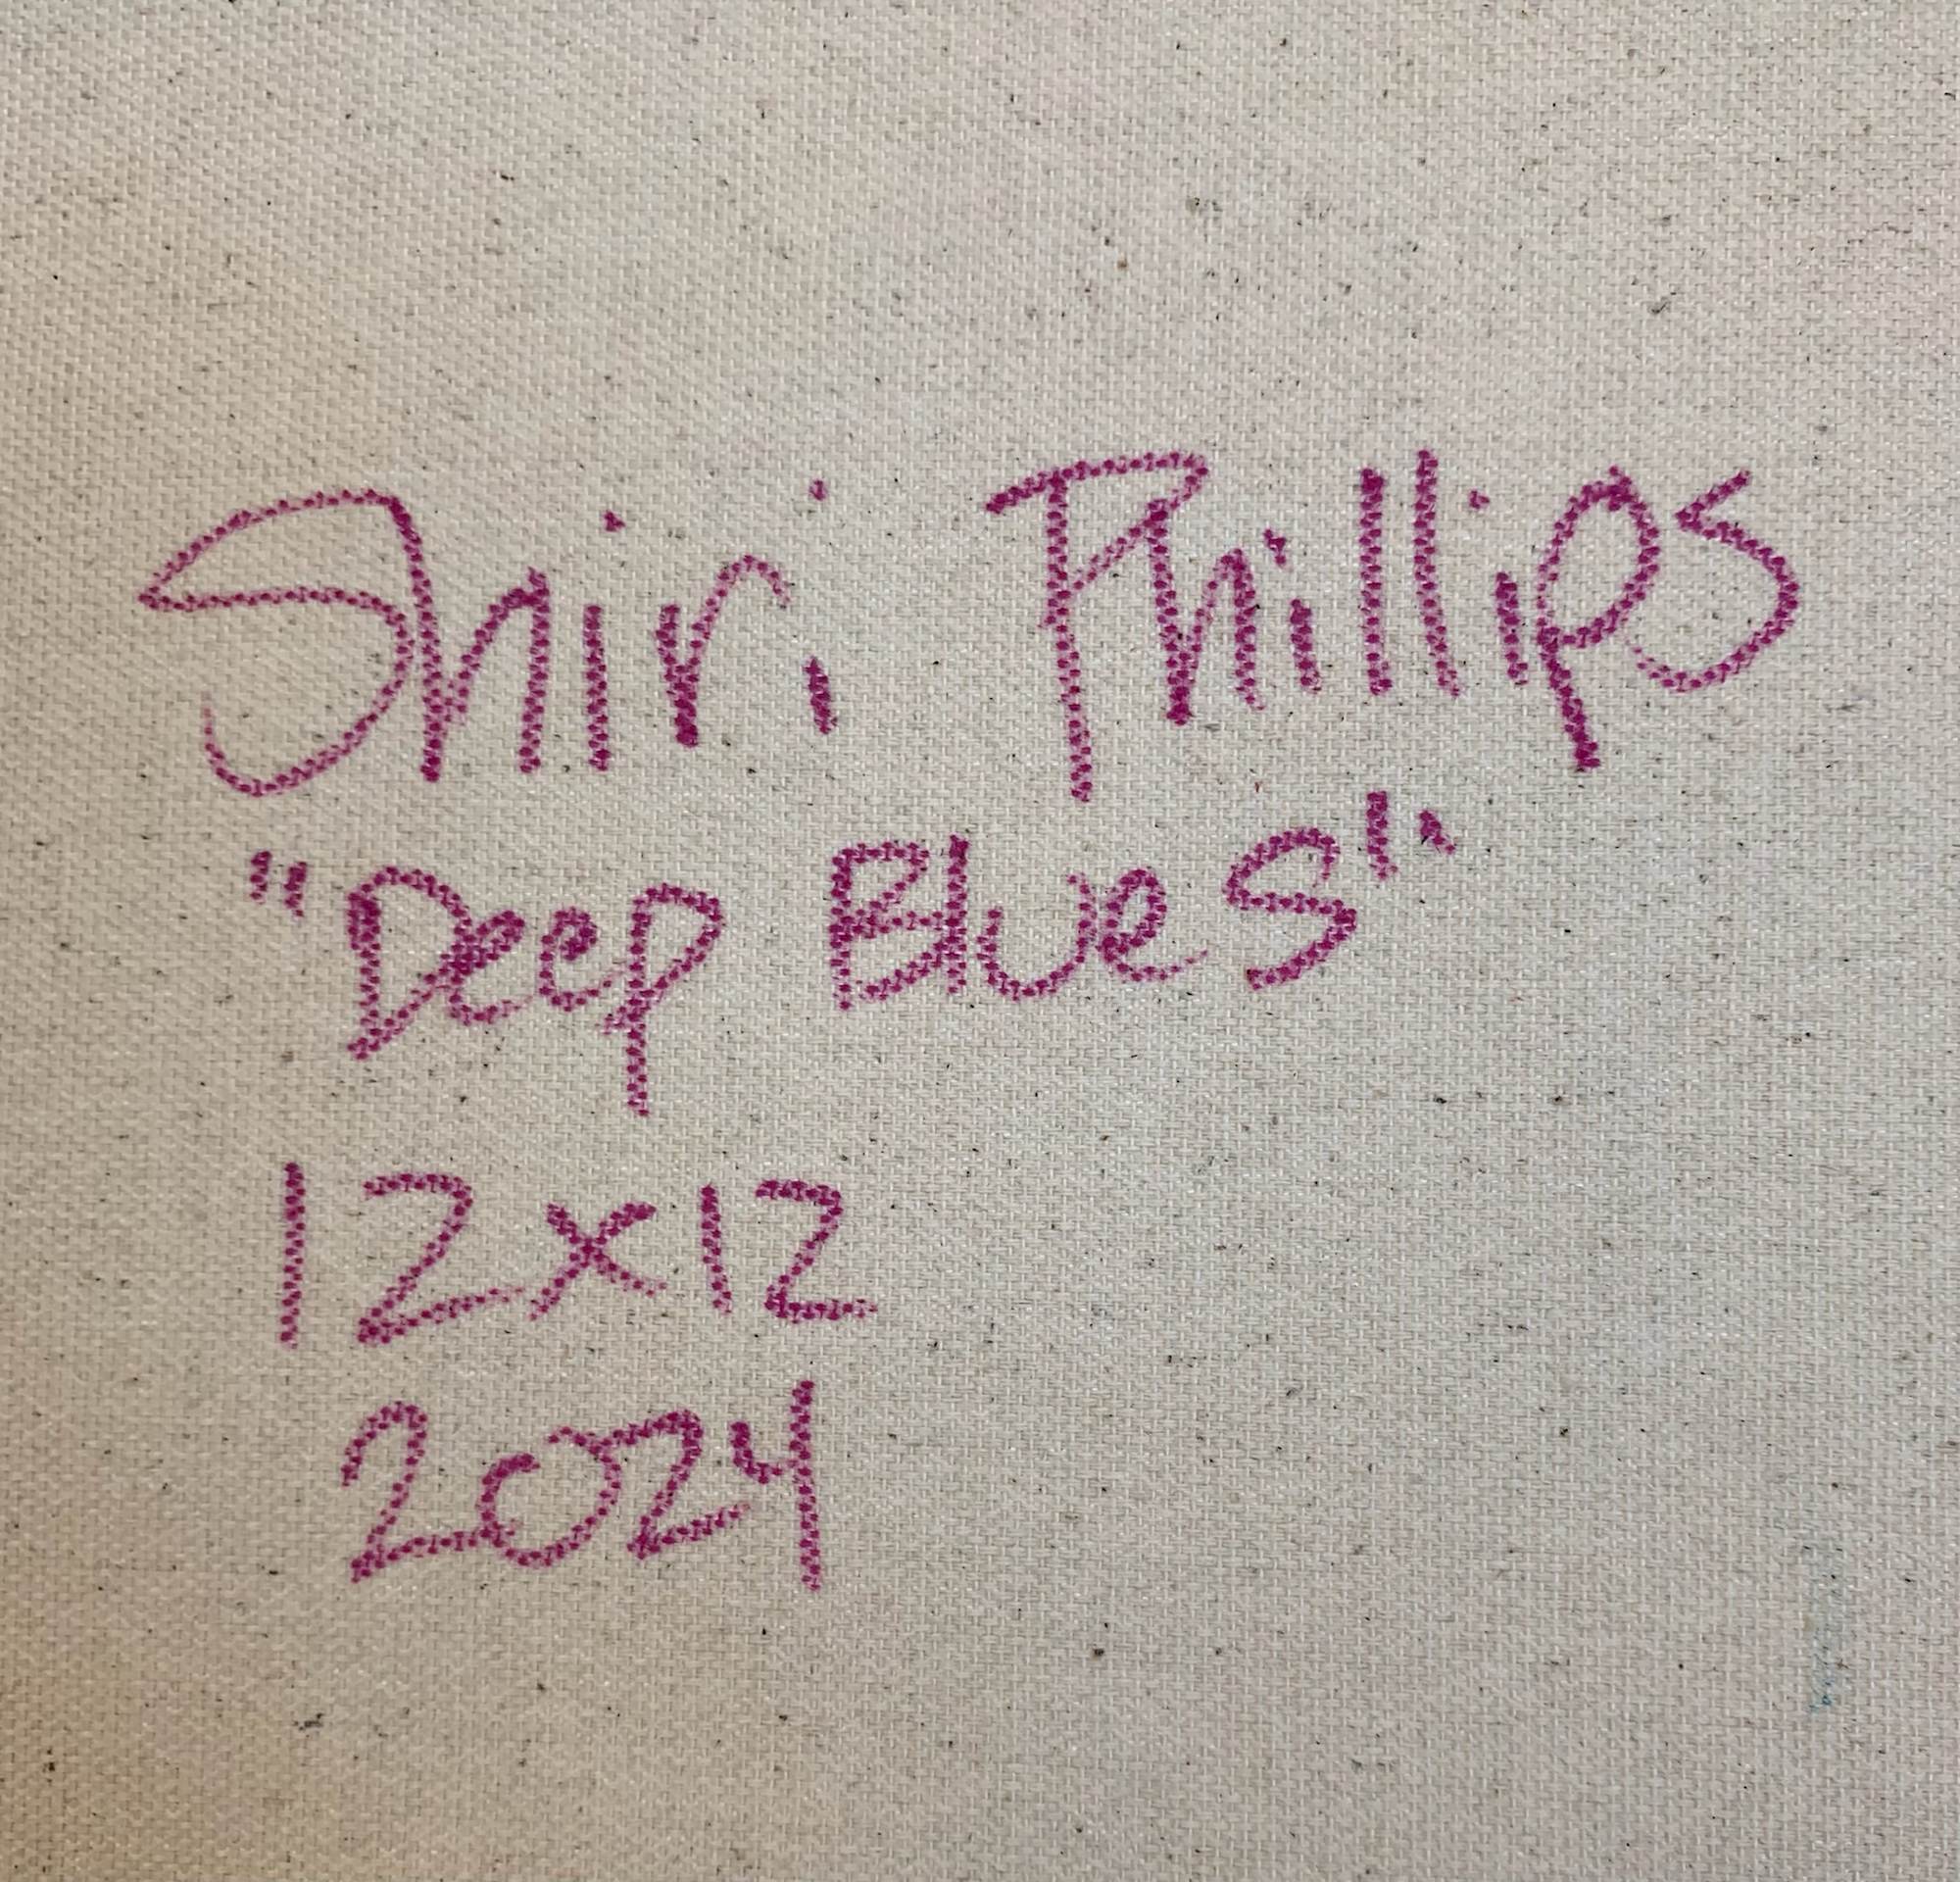 Shiri Phillips
"Deep Blues"
12x12
2024